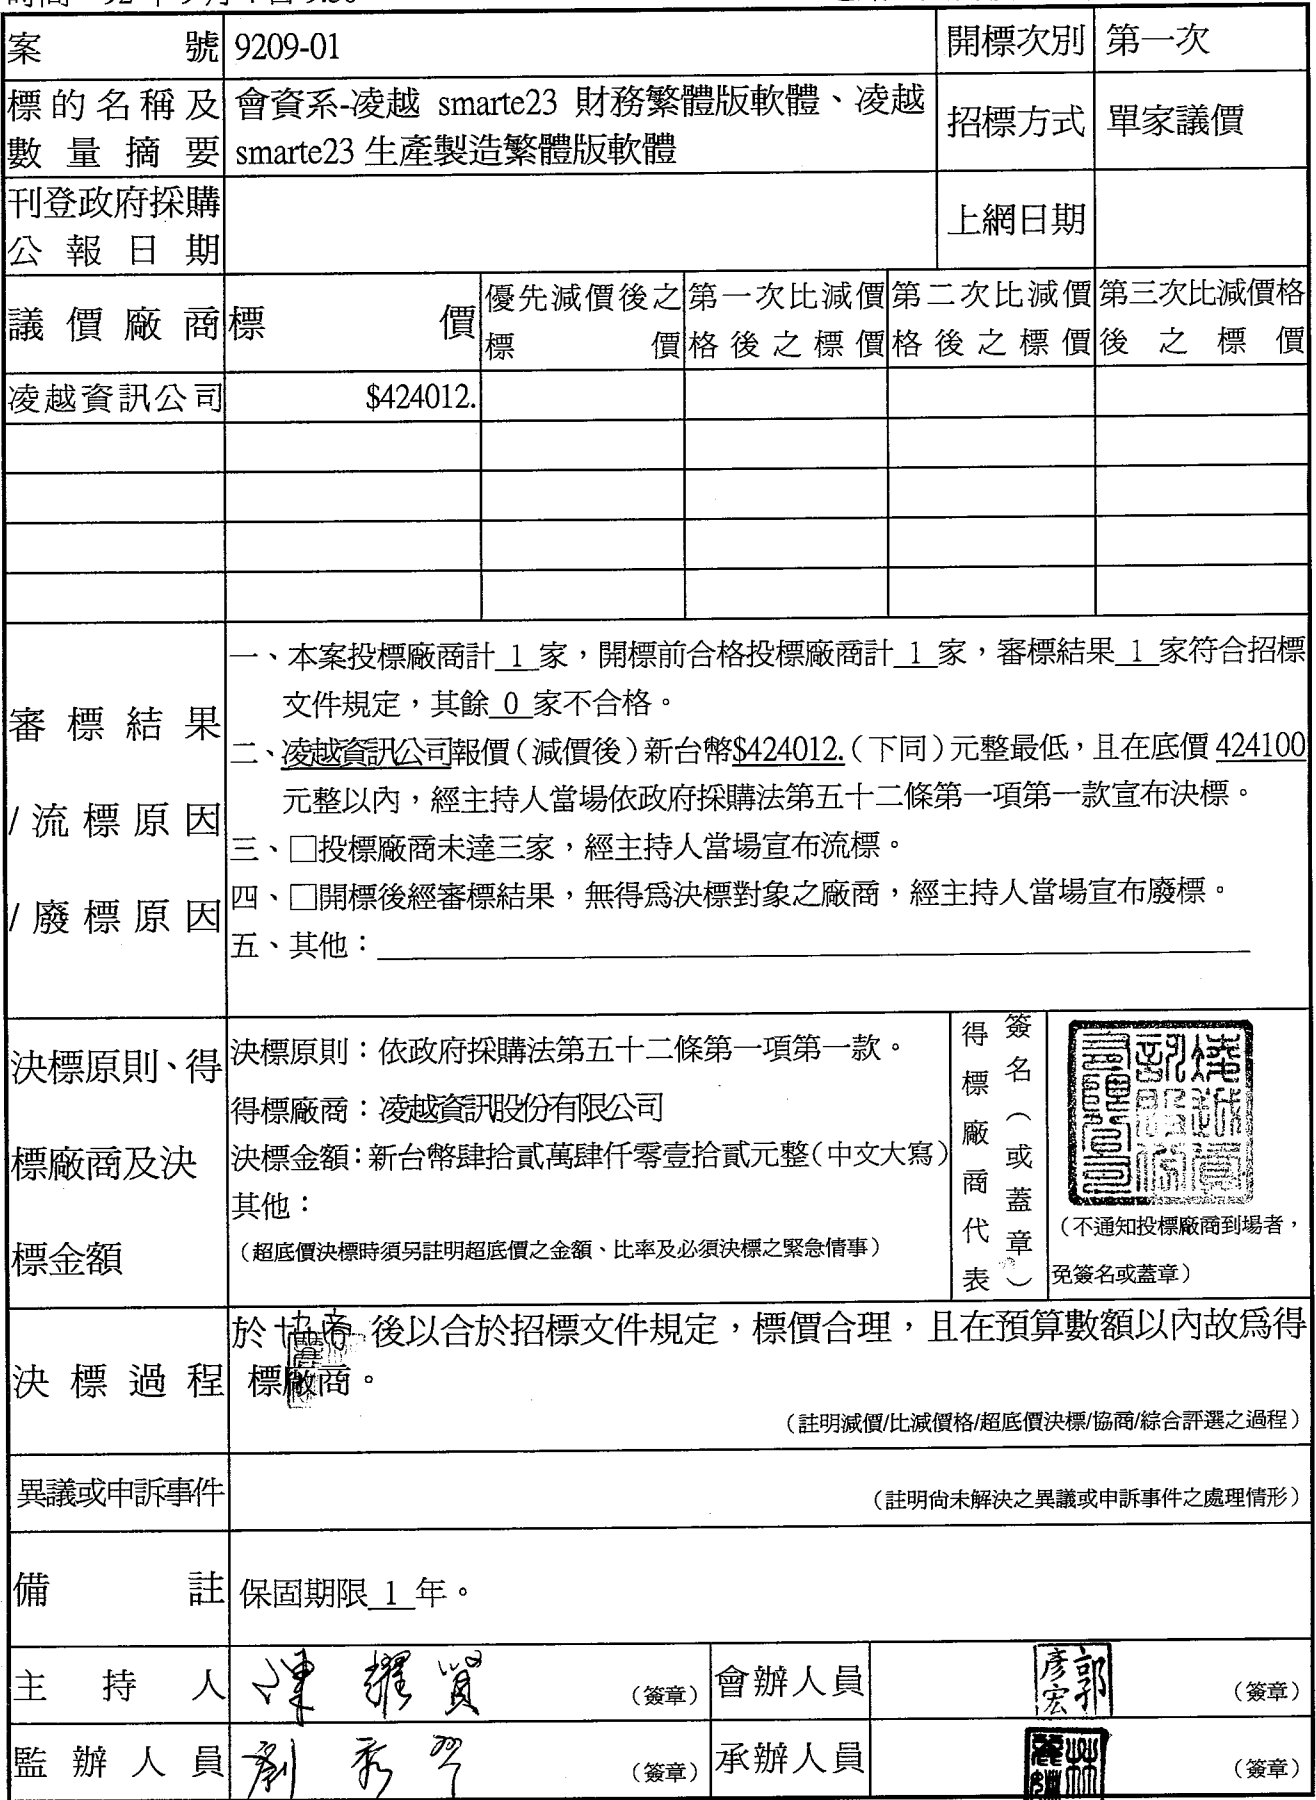 案號 9209-01 開標次別 第一次
標的名稱及 會資系-凌越 smarte23 財務繁體版軟體、凌越 招標方式 單家議價
數量摘要 smarte23 生產製造繁體版軟體
刊登政府採購
公報日期 上網日期
議價廠商 標價 優先減價後之 第一次比減價 第二次比減價 第三次比減價格
標價 格後之標價 格後之標價 後之標價
凌越資訊公司 $424012.
審標結果
/流標原因
/廢標原因
一、本案投標廠商計 1 家，開標前合格投標廠商計 1 家，審標結果 1 家符合招標
文件規定，其餘 0 家不合格。
二、凌越資訊公司報價（減價後）新台幣$424012.（下同）元整最低，且在底價 424100
元整以內，經主持人當場依政府採購法第五十二條第一項第一款宣布決標。
三、□投標廠商未達三家，經主持人當場宣布流標。
四、□開標後經審標結果，無得為決標對象之廠商，經主持人當場宣布廢標。
五、其他：
決標原則、得
標廠商及決
標金額
決標原則：依政府採購法第五十二條第一項第一款。
得標廠商：凌越資訊股份有限公司
決標金額：新台幣肆拾貳萬肆仟零壹拾貳元整（中文大寫）
其他：
（超底價決標時須另註明超底價之金額、比率及必須決標之緊急情事）
得標廠商代表
簽名（或蓋章）
（不通知投標廠商到場者，
免簽名或蓋章）
決標過程
於協商後以合於招標文件規定，標價合理，且在預算數額以內故為得
標廠商。
（註明減價/比減價格/超底價決標/協商/綜合評選之過程）
異議或申訴事件 （註明尚未解決之異議或申訴事件之處理情形）
備註 保固期限 1 年。
主持人 陳耀賢 （簽章） 會辦人員 郭彥宏 （簽章）
監辦人員 劉秀琴 （簽章） 承辦人員 （簽章）